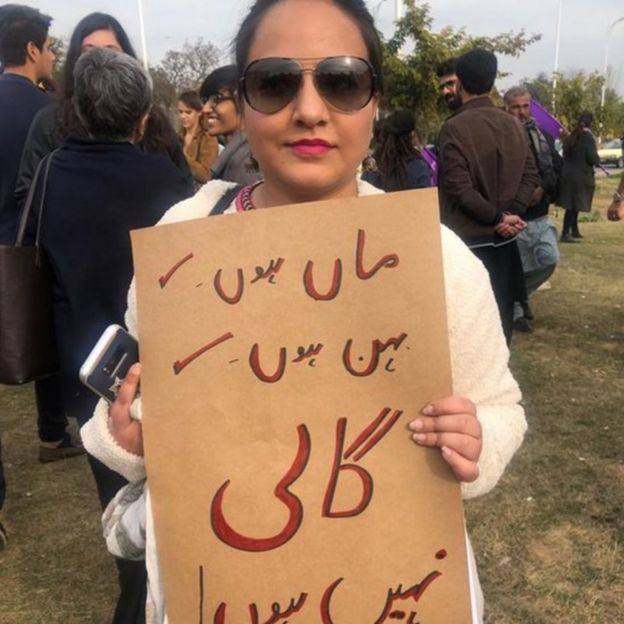 ماں ہوں ۔ ✓
بہن ہوں ۔ ✓
گالی
نہیں ہوں!